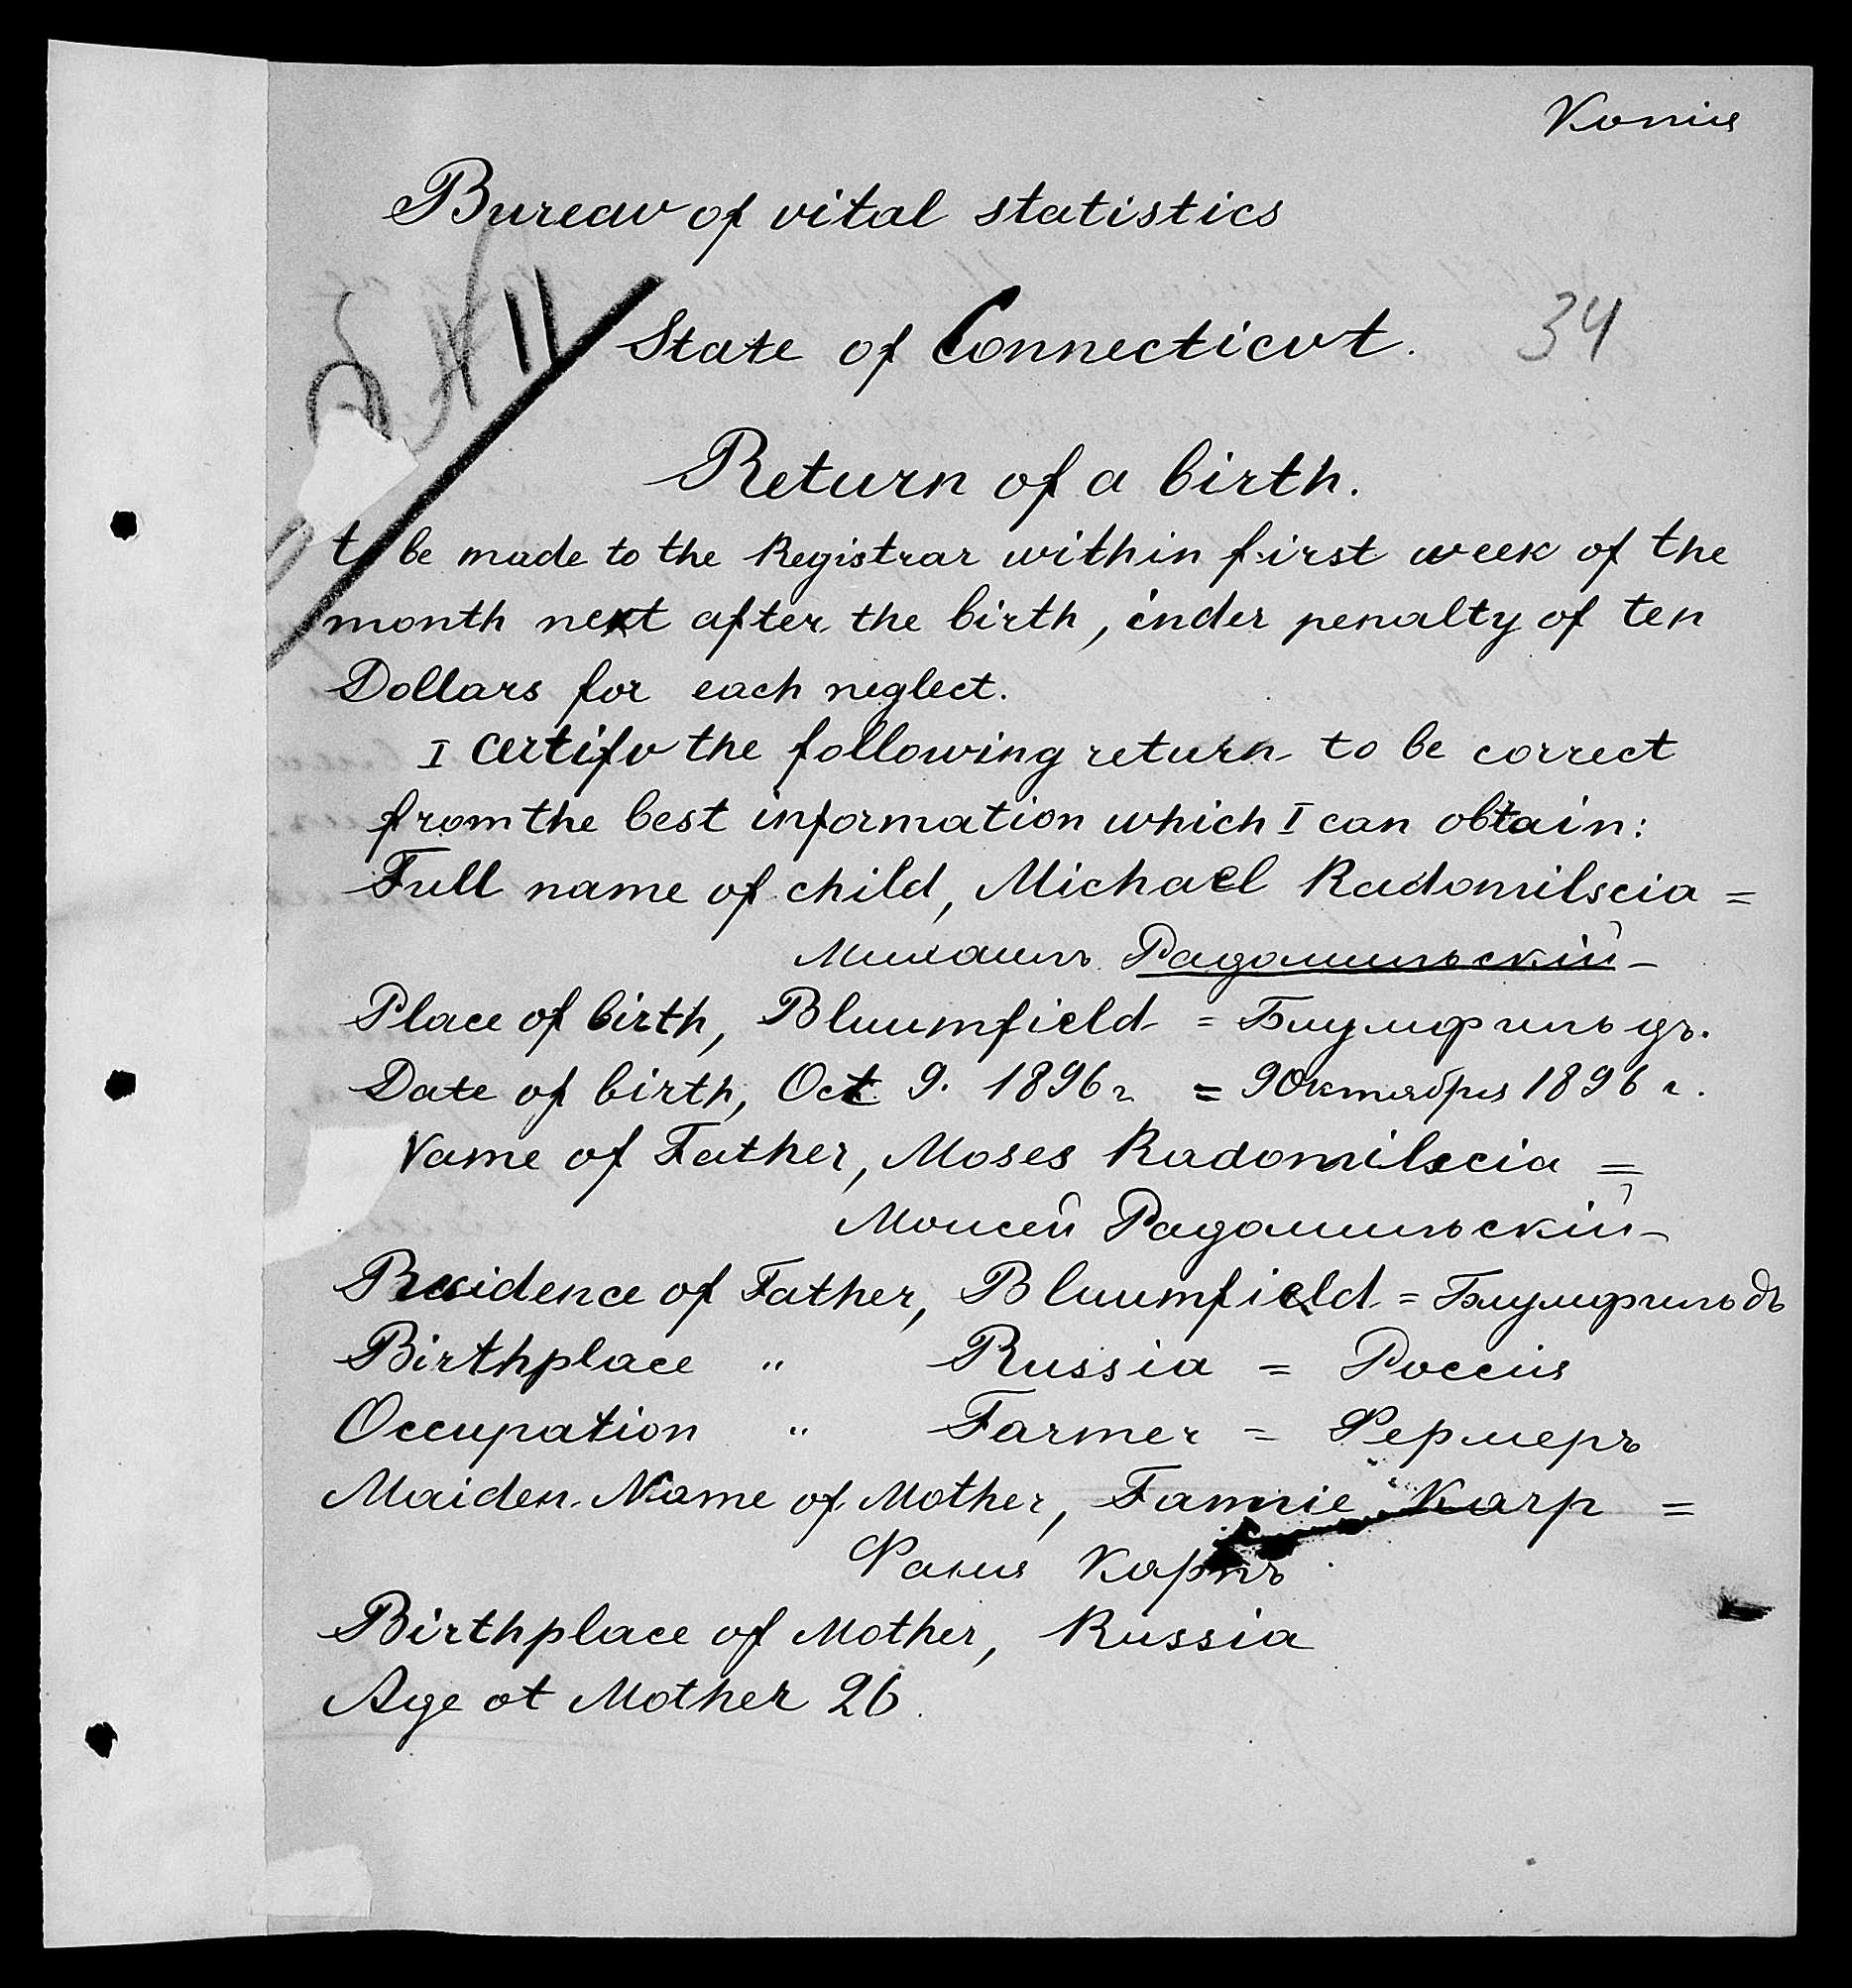 Копія
Bureau of vital statistics
State of Connecticut. 34
Return of a birth.
to be made to the Registrar within first week of the
month next after the birth, inder penalty of ten
Dollars for each neglect.
I certify the following return to be correct
from the best information which I can obtain:
Full name of child, Michael Radomilscia =
Михаилъ Радомильскій -
Place of birth, Bluumfield = Блумфильдъ.
Date of birth, Oct 9. 1896 г = 9 Октября 1896 г.
Name of Father, Moses Radomilscia =
Моисей Радомильскій -
Residence of Father, Bluumfield = Блумфильдъ
Birthplace " Russia = Россія
Occupation " Farmer = Фермеръ
Maiden Name of Mother, Fannie Karp =
Фаня Карпъ
Birthplace of Mother, Russia
Age of Mother 26.